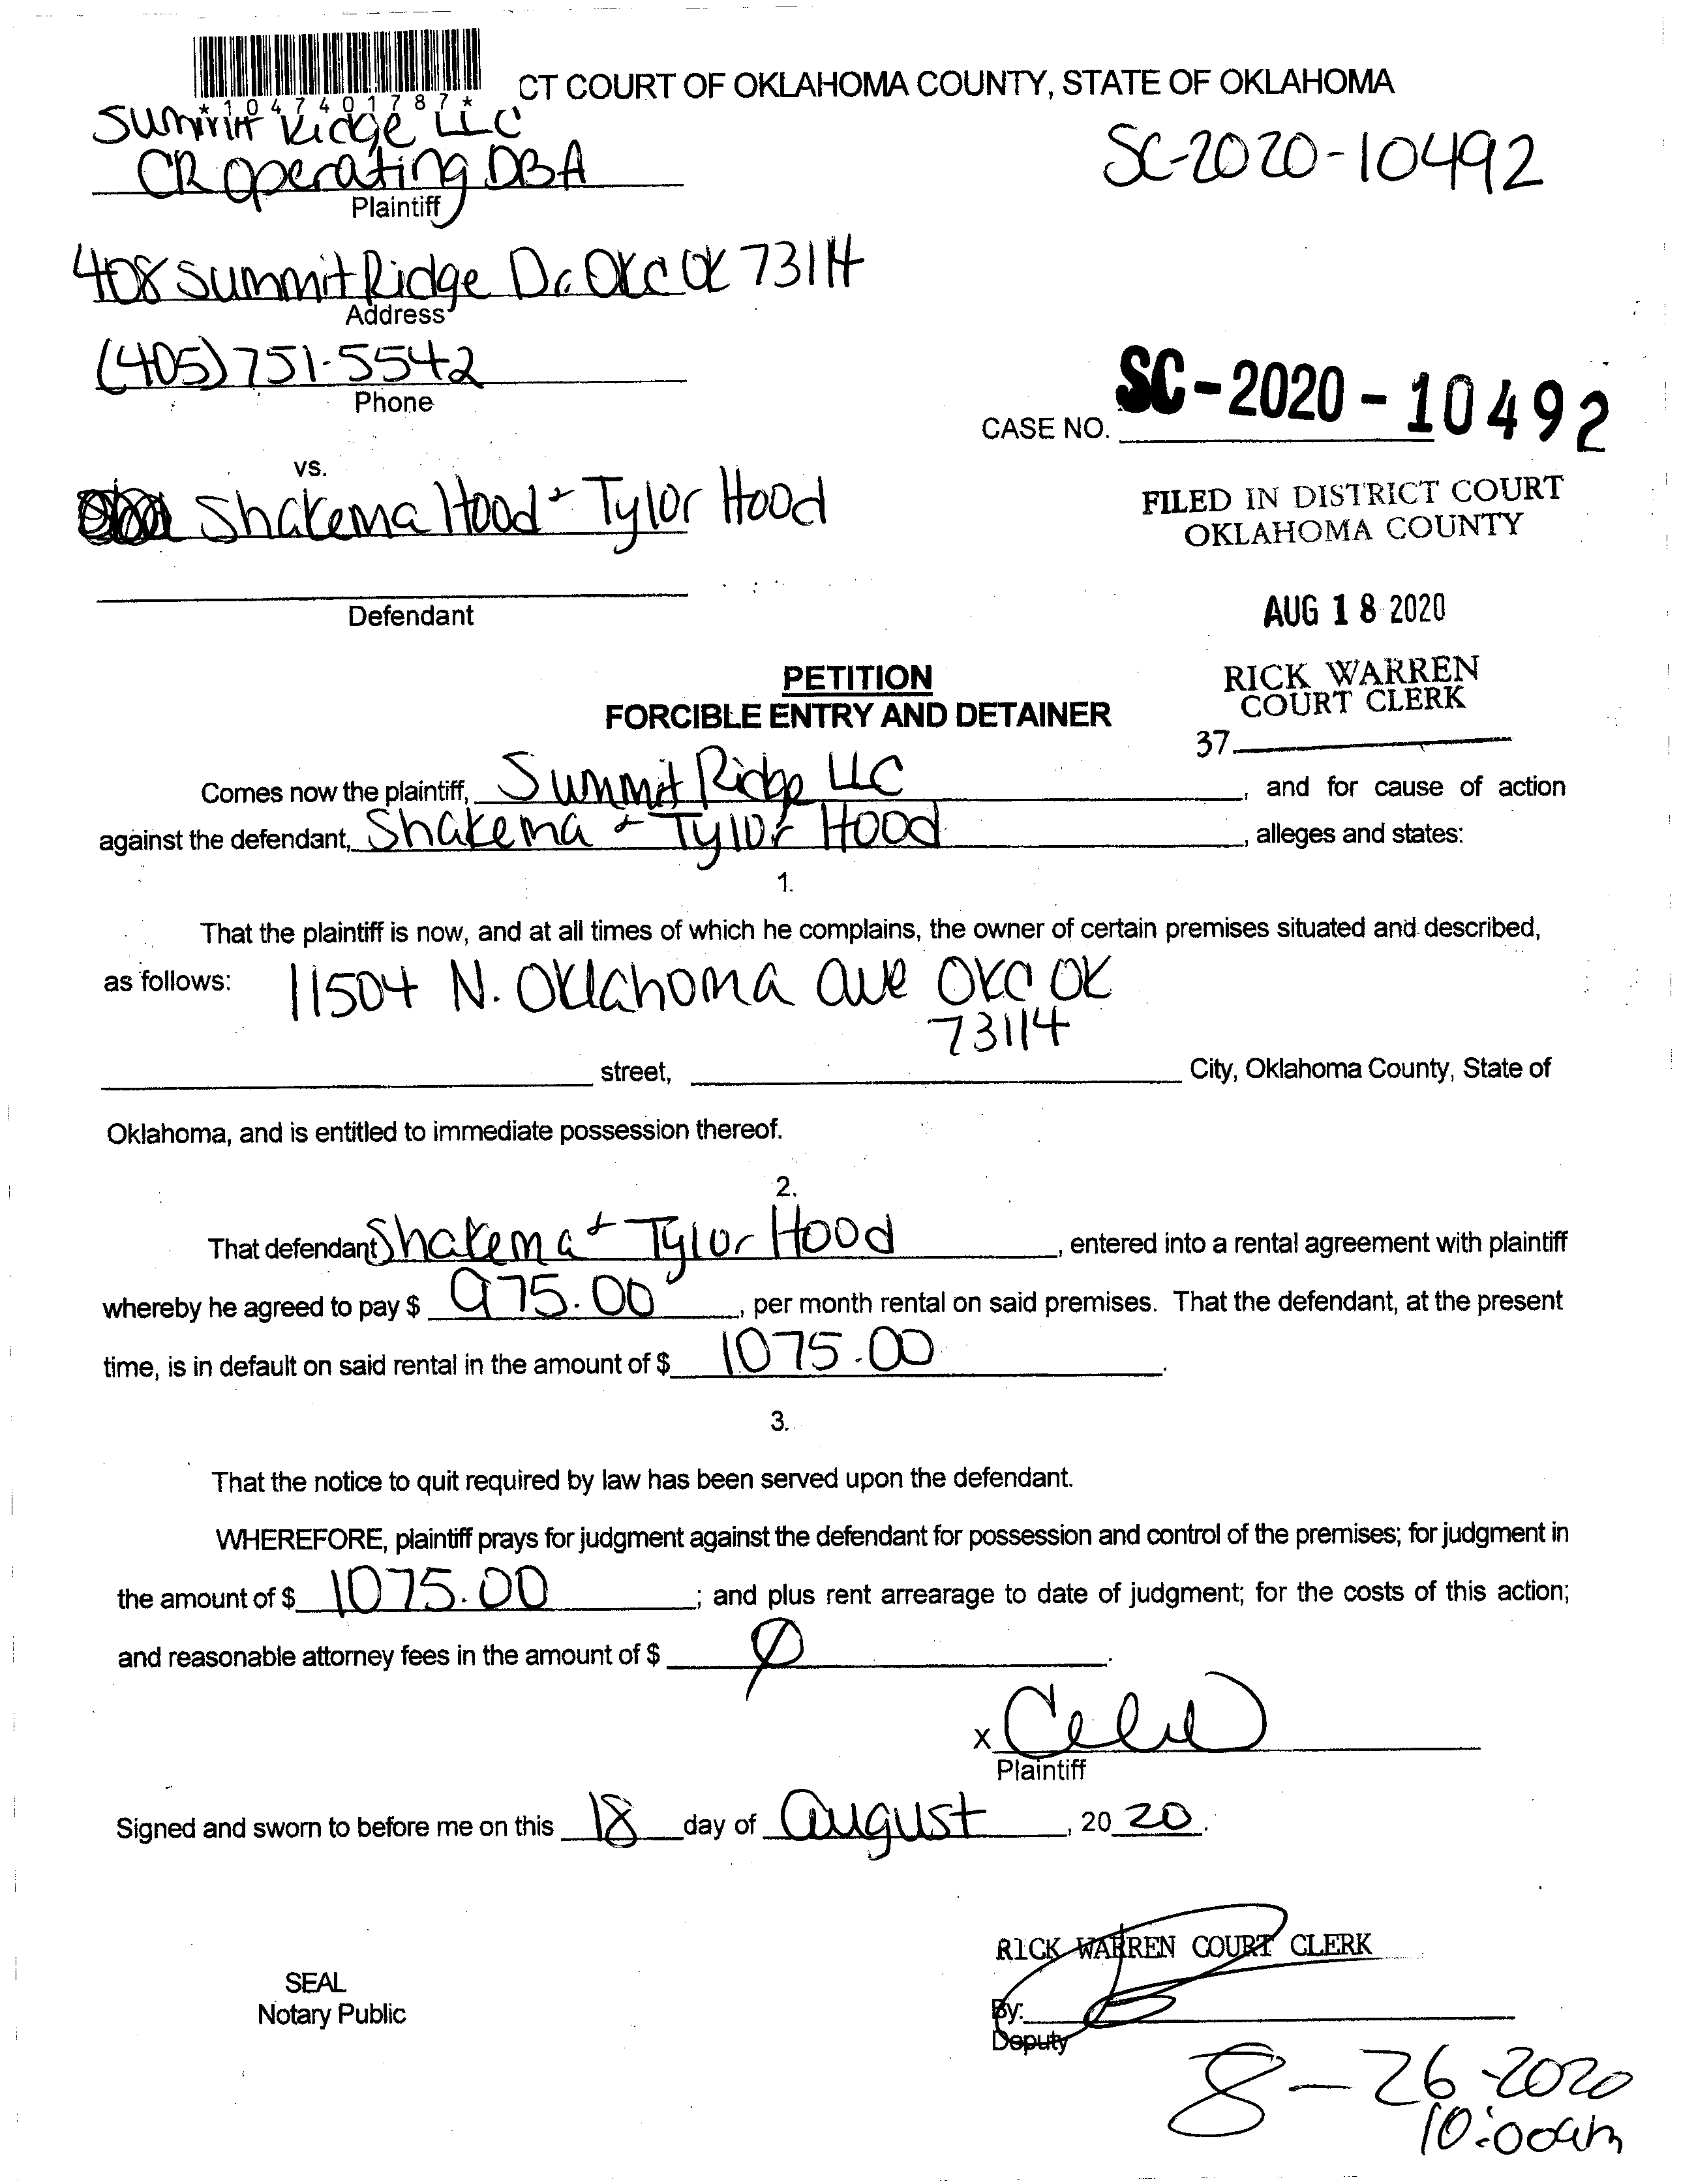 *1047401787*
CT COURT OF OKLAHOMA COUNTY, STATE OF OKLAHOMA
Summit Ridge LLC
CR Operating DBA
SC-2020-10492
Plaintiff
408 Summit Ridge Dr OKC OK 73114
Address
(405) 751-5542
Phone
CASE NO. SC-2020-10492
vs.
Shakema Hood + Tylor Hood
FILED IN DISTRICT COURT
OKLAHOMA COUNTY
Defendant
AUG 18 2020
PETITION
FORCIBLE ENTRY AND DETAINER
RICK WARREN
COURT CLERK
37
Comes now the plaintiff, Summit Ridge LLC, and for cause of action
against the defendant, Shakema + Tylor Hood, alleges and states:
1.
That the plaintiff is now, and at all times of which he complains, the owner of certain premises situated and described,
as follows: 11504 N. Oklahoma ave OKC OK
73114
street, City, Oklahoma County, State of
Oklahoma, and is entitled to immediate possession thereof.
2.
That defendant Shakema + Tylor Hood, entered into a rental agreement with plaintiff
whereby he agreed to pay $ 975.00, per month rental on said premises. That the defendant, at the present
time, is in default on said rental in the amount of $ 1075.00.
3.
That the notice to quit required by law has been served upon the defendant.
WHEREFORE, plaintiff prays for judgment against the defendant for possession and control of the premises; for judgment in
the amount of $ 1075.00; and plus rent arrearage to date of judgment; for the costs of this action;
and reasonable attorney fees in the amount of $ Ø.
X
Plaintiff
Signed and sworn to before me on this 18 day of august, 20 20.
RICK WARREN COURT CLERK
SEAL
Notary Public
By:
Deputy
8-26-2020
10:00am